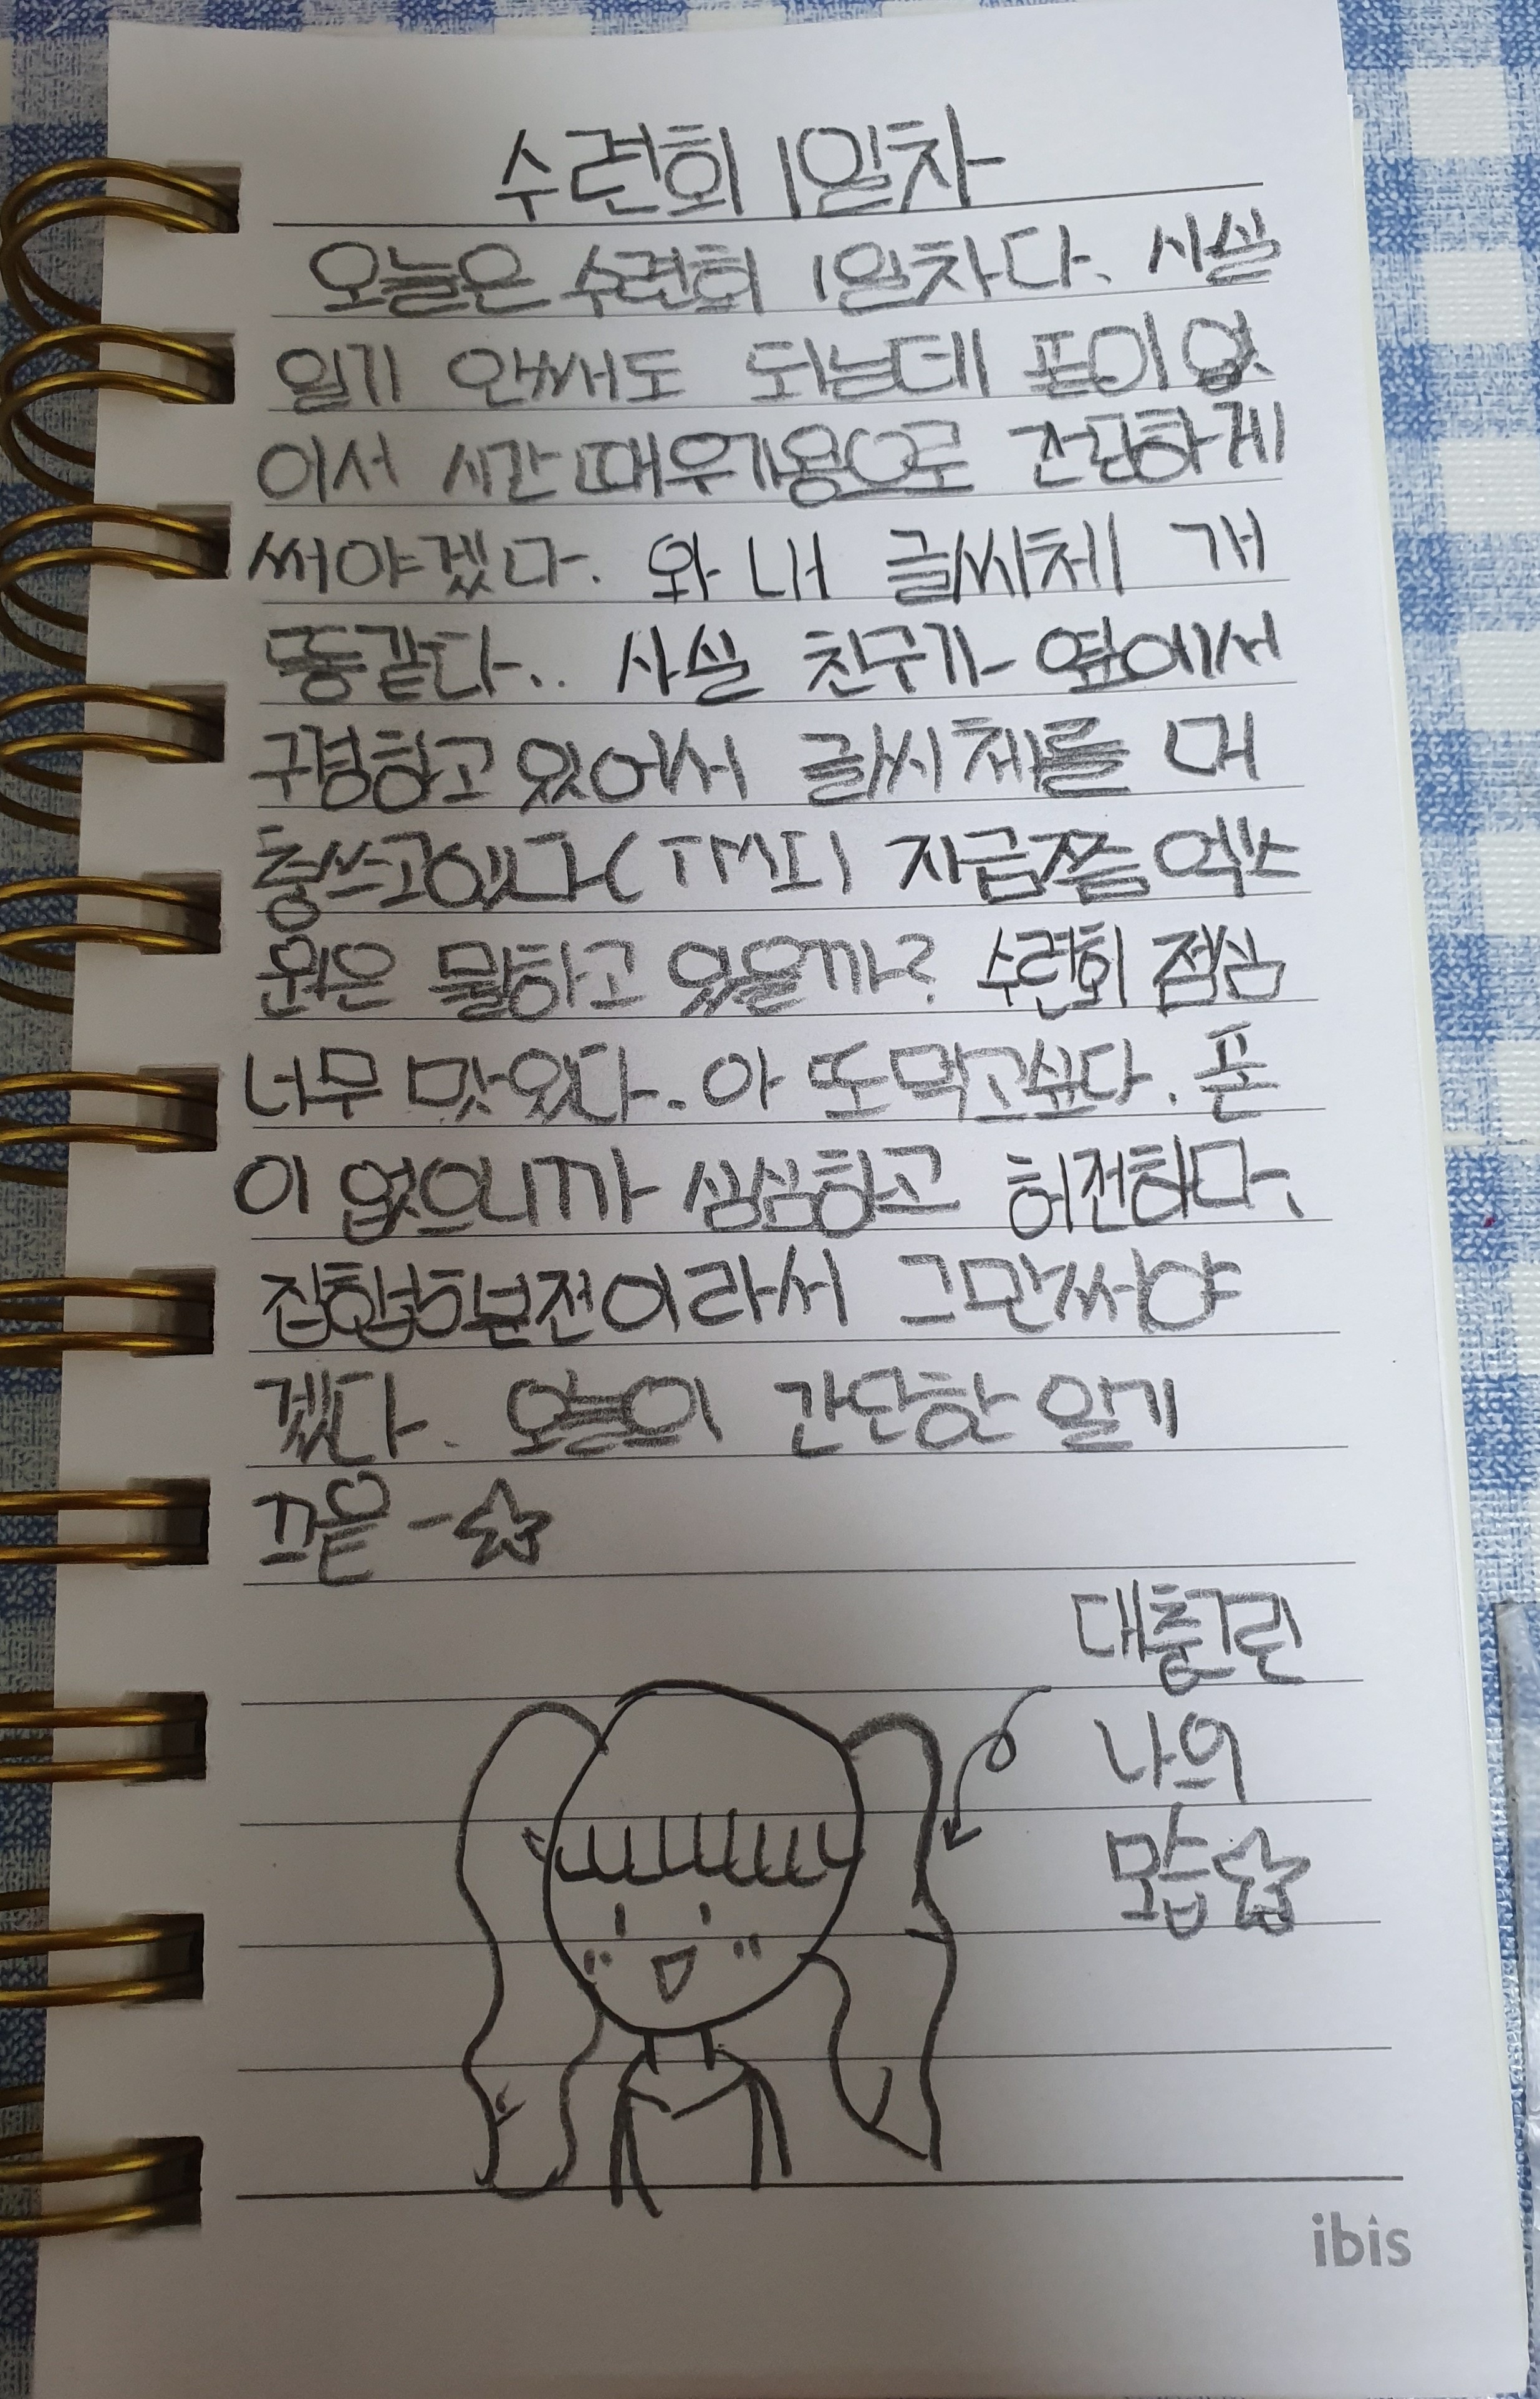 수련회 1일차
오늘은 수련회 1일차다. 사실
일기 안써도 되는데 폰이 없
어서 시간때우기용으로 간단하게
써야겠다. 와 내 글씨체 개
똥같다.. 사실 친구가 옆에서
구경하고 있어서 글씨체를 대
충쓰고있다(TMI) 지금쯤 엑스
원은 뭘하고 있을까? 수련회 점심
너무 맛있다. 아 또 먹고싶다. 폰
이 없으니까 심심하고 허전하다.
집합5분전이라서 그만써야
겠다. 오늘의 간단한 일기
끄읕-☆
대충그린
나의
모습☆
ibis